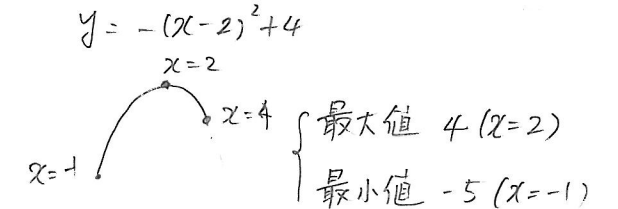 y = -(x-2)²+4
x=2
x=4
最大値 4 (x=2)
x=-1
最小値 -5 (x=-1)